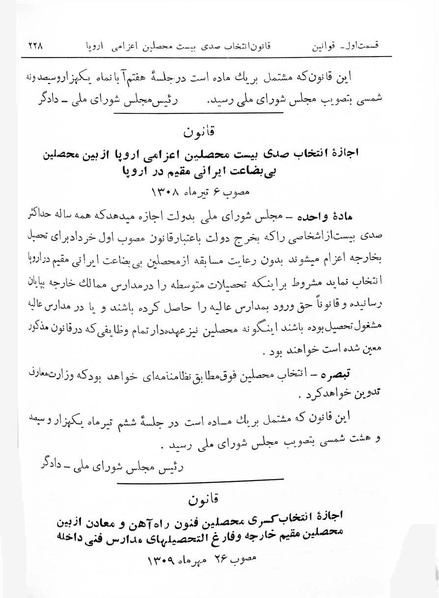 قسمت اول - قوانین قانون انتخاب صدی بیست محصلین اعزامی اروپا ۲۲۸
این قانون که مشتمل بریك ماده است درجلسهٔ هفتم آبانماه یکهزاروسیصدونه
شمسی بتصویب مجلس شورای ملی رسید. رئیس مجلس شورای ملی ـ دادگر
قانون
اجازهٔ انتخاب صدی بیست محصلین اعزامی اروپا ازبین محصلین
بی‌بضاعت ایرانی مقیم در اروپا
مصوب ۶ تیر ماه ۱۳۰۸
مادهٔ واحده ـ مجلس شورای ملی بدولت اجازه میدهدکه همه ساله حداکثر
صدی بیست ازاشخاصی راکه بخرج دولت باعتبارقانون مصوب اول خردادبرای تحصیل
بخارجه اعزام میشوند بدون رعایت مسابقه ازمحصلین بی‌بضاعت ایرانی مقیم دراروپا
انتخاب نماید مشروط براینکه تحصیلات متوسطه را درمدارس ممالك خارجه بپایان
رسانیده و قانوناً حق ورود بمدارس عالیه را حاصل کرده باشند و یا در مدارس عالیه
مشغول تحصیل بوده باشند اینگونه محصلین نیزعهده‌دارتمام وظایفی که درقانون مذکور
معین شده است خواهند بود .
تبصره ـ انتخاب محصلین فوق مطابق نظامنامه‌ای خواهد بودکه وزارت معارف
تدوین خواهدکرد .
این قانون که مشتمل بریك مـاده است در جلسهٔ ششم تیر ماه یکهزار و سیصد
و هشت شمسی بتصویب مجلس شورای ملی رسید .
رئیس مجلس شورای ملی ـ دادگر
قانون
اجازهٔ انتخاب کسری محصلین فنون راه‌آهن و معادن ازبین
محصلین مقیم خارجه وفارغ التحصیلهای مدارس فنی داخله
مصوب ۲۶ مهر ماه ۱۳۰۹